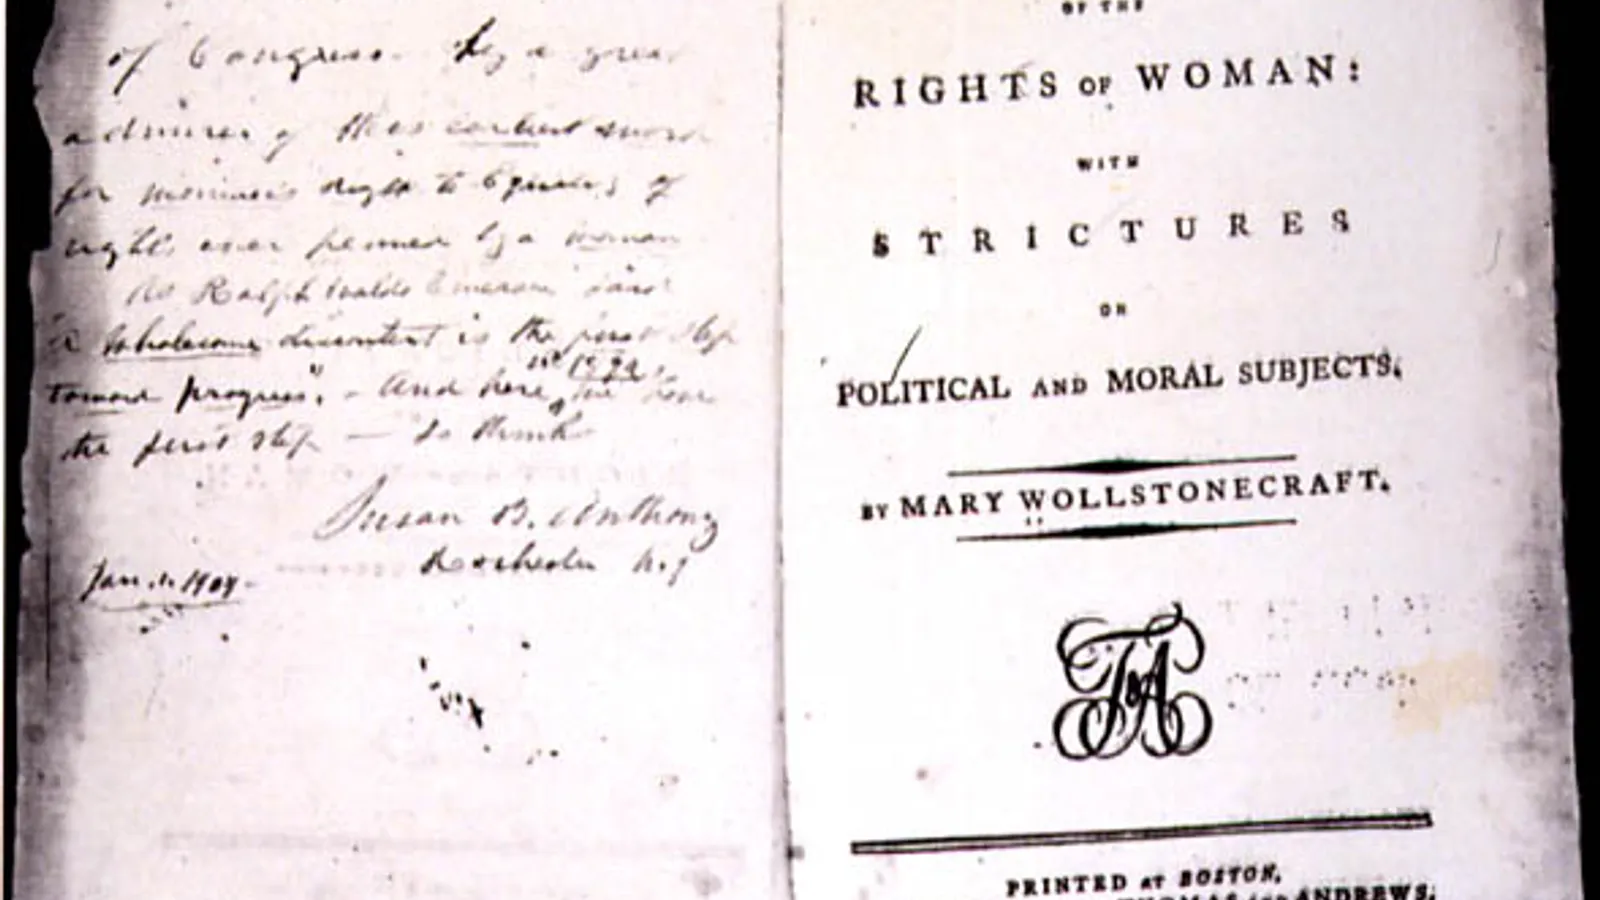 of Congress - by a great
admirer of this earliest work
for woman's right to Equality of
rights ever penned by a woman
As Ralph Waldo Emerson said
"A wholesome discontent is the first step
toward progress". - And here, in 1792, we have
the first step - so thinks
Susan B. Anthony
Rochester N.Y
Jan. 1. 1904 -
OF THE
RIGHTS OF WOMAN:
WITH
STRICTURES
ON
POLITICAL AND MORAL SUBJECTS.
BY MARY WOLLSTONECRAFT.
T&A
PRINTED AT BOSTON,
THOMAS AND ANDREWS,